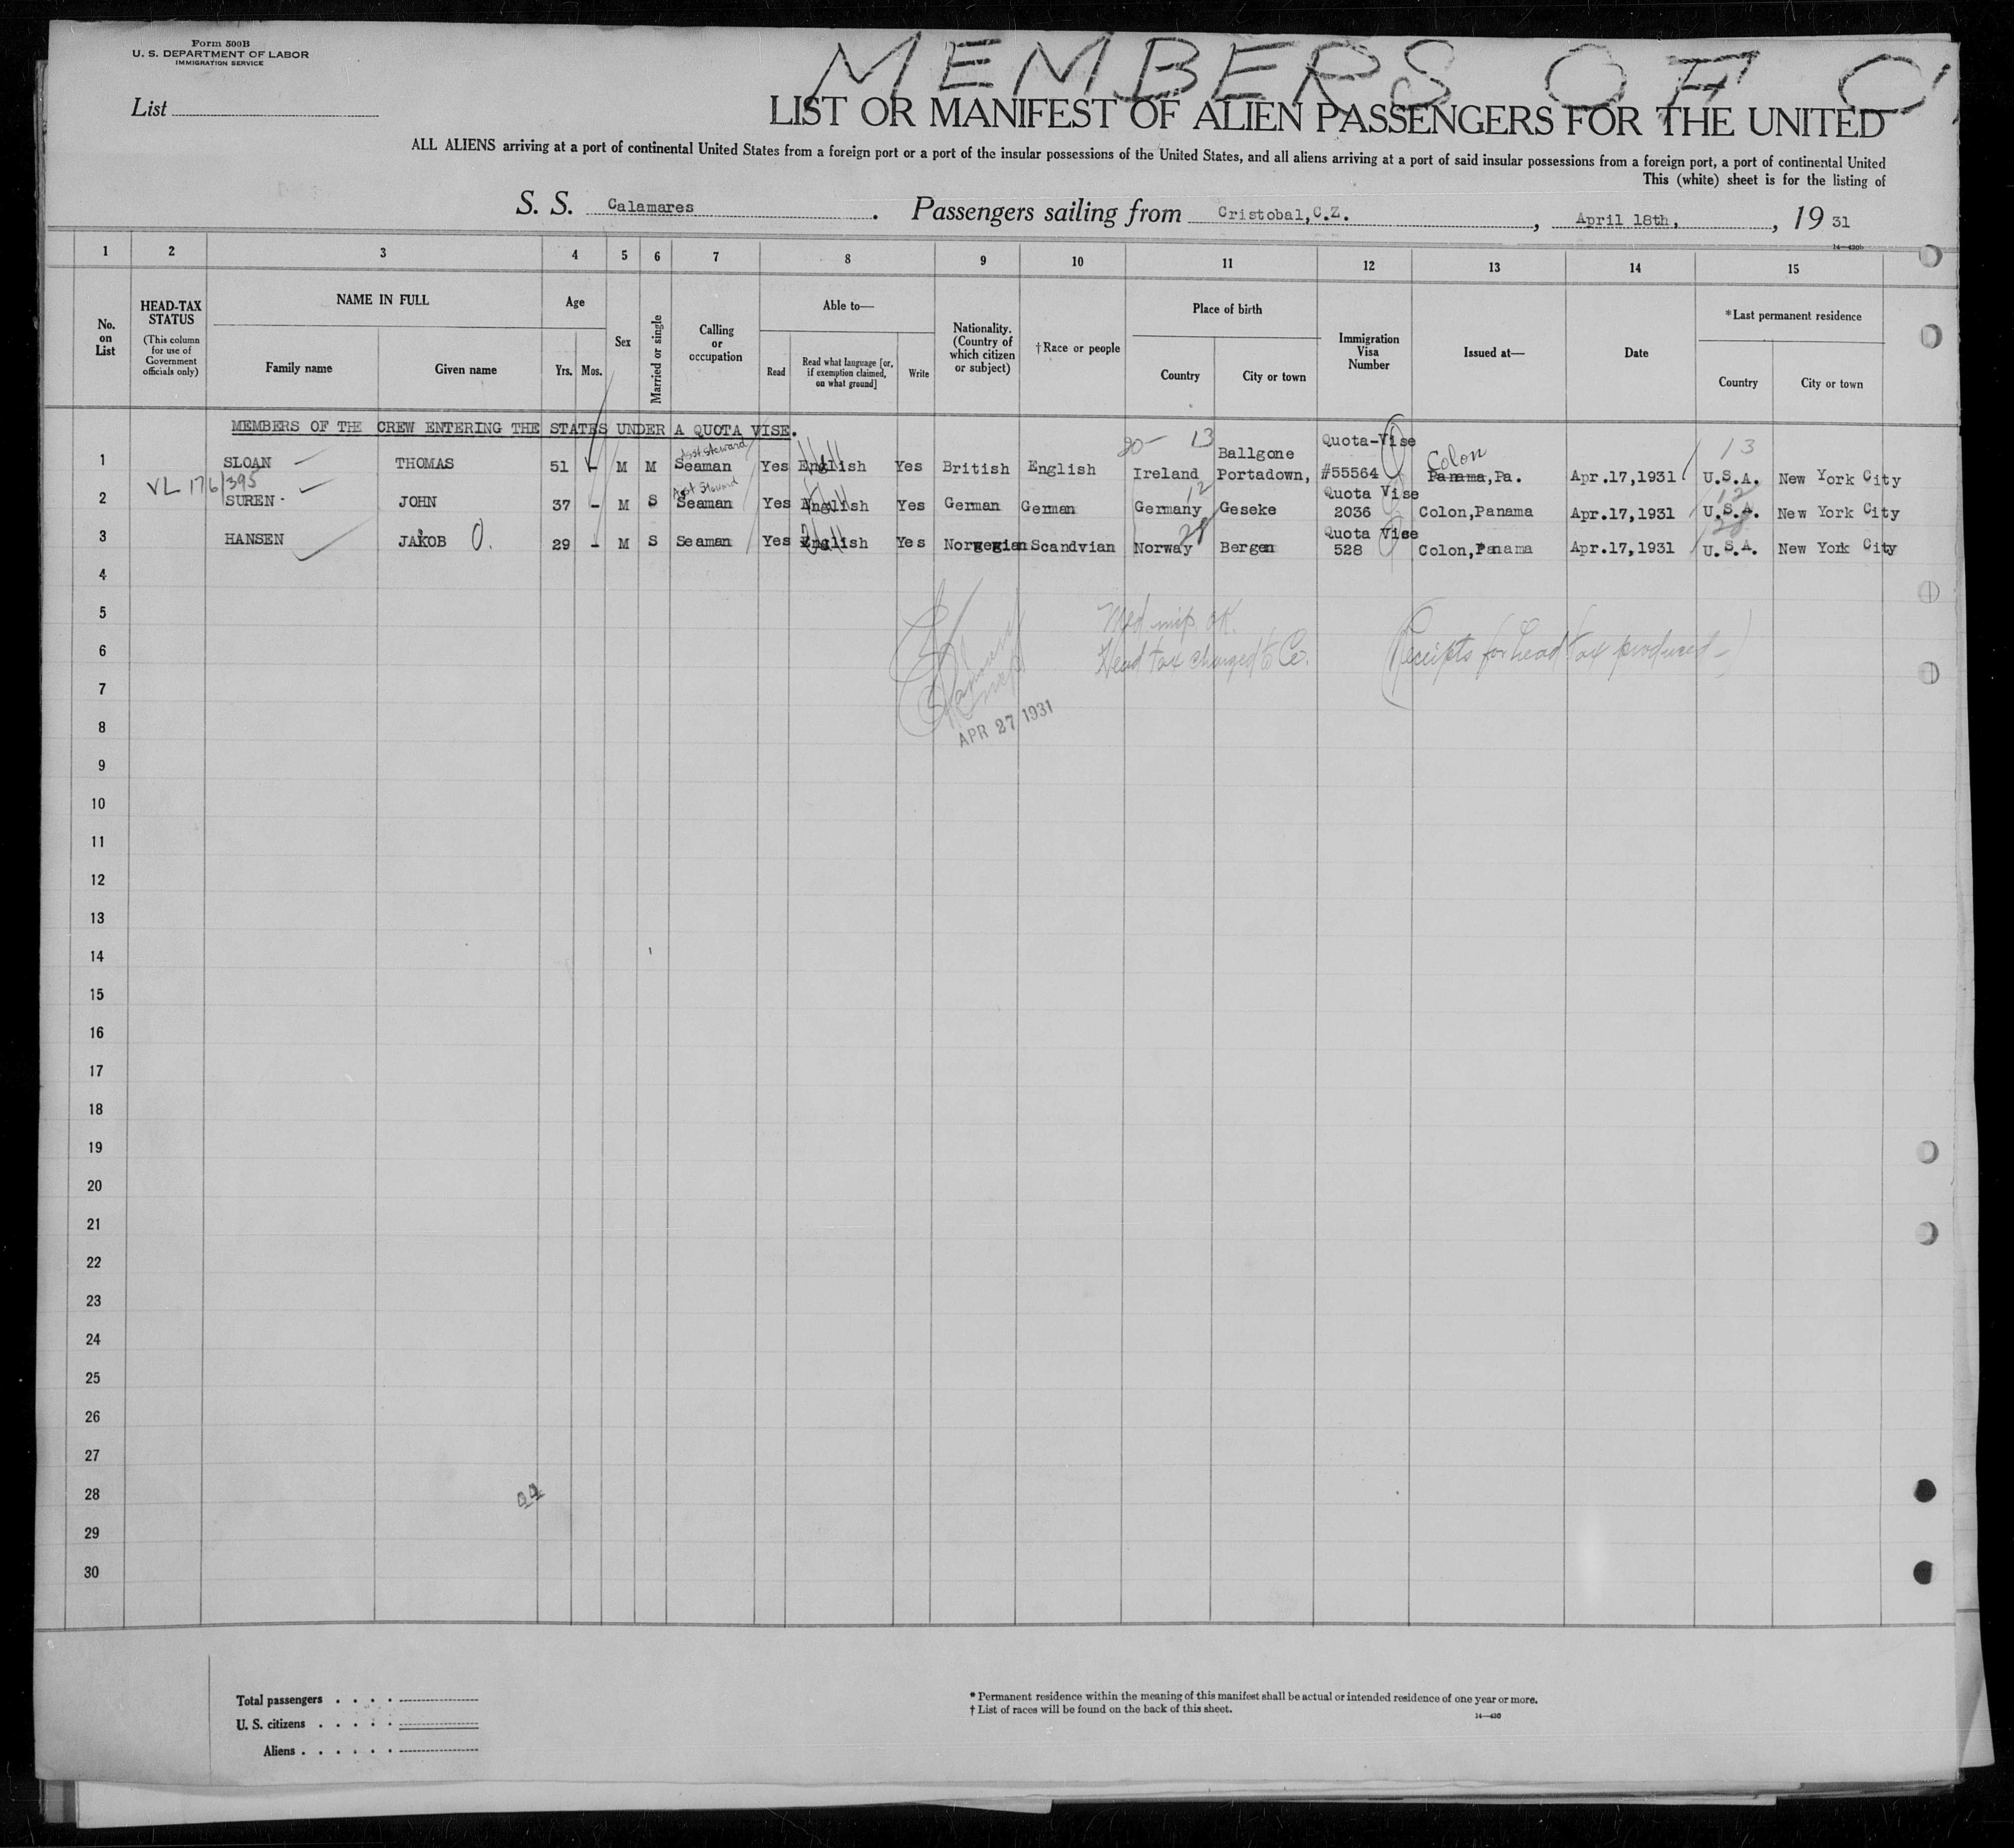 Form 500B
U. S. DEPARTMENT OF LABOR
IMMIGRATION SERVICE
MEMBERS OF C
List
LIST OR MANIFEST OF ALIEN PASSENGERS FOR THE UNITED
ALL ALIENS arriving at a port of continental United States from a foreign port or a port of the insular possessions of the United States, and all aliens arriving at a port of said insular possessions from a foreign port, a port of continental United
This (white) sheet is for the listing of
S. S. Calamares. Passengers sailing from Cristobal,C.Z., April 18th, , 19 31
14—430b
1 2 3 4 5 6 7 8 9 10 11 12 13 14 15
No. on List
HEAD-TAX STATUS
(This column for use of Government officials only)
NAME IN FULL
Family name Given name
Age
Yrs. Mos.
Sex
Married or single
Calling or occupation
Able to—
Read
Read what language [or, if exemption claimed, on what ground]
Write
Nationality. (Country of which citizen or subject)
†Race or people
Place of birth
Country City or town
Immigration Visa Number
Issued at—
Date
*Last permanent residence
Country City or town
MEMBERS OF THE CREW ENTERING THE STATES UNDER A QUOTA VISE.
Asst Steward 20- 13 Ballgone Quota-Vise Colon 13
1 SLOAN THOMAS 51 - M M Seaman Yes English Yes British English Ireland Portadown, #55564 Panama,Pa. Apr.17,1931 U.S.A. New York City
VL 176/395
Asst Steward 12 Quota Vise 12
2 SUREN JOHN 37 - M S Seaman Yes English Yes German German Germany Geseke 2036 Colon,Panama Apr.17,1931 U.S.A. New York City
28 Quota Vise 28
3 HANSEN JAKOB O. 29 - M S Seaman Yes English Yes Norwegian Scandvian Norway Bergen 528 Colon,Panama Apr.17,1931 U.S.A. New York City
4
5
Med. insp. ok.
6
Head tax charged to Co. (Receipts for head tax produced-)
7
8
APR 27 1931
9
10
11
12
13
14
15
16
17
18
19
20
21
22
23
24
25
26
27
28
29
30
Total passengers
U. S. citizens
Aliens
* Permanent residence within the meaning of this manifest shall be actual or intended residence of one year or more.
† List of races will be found on the back of this sheet.
14—430